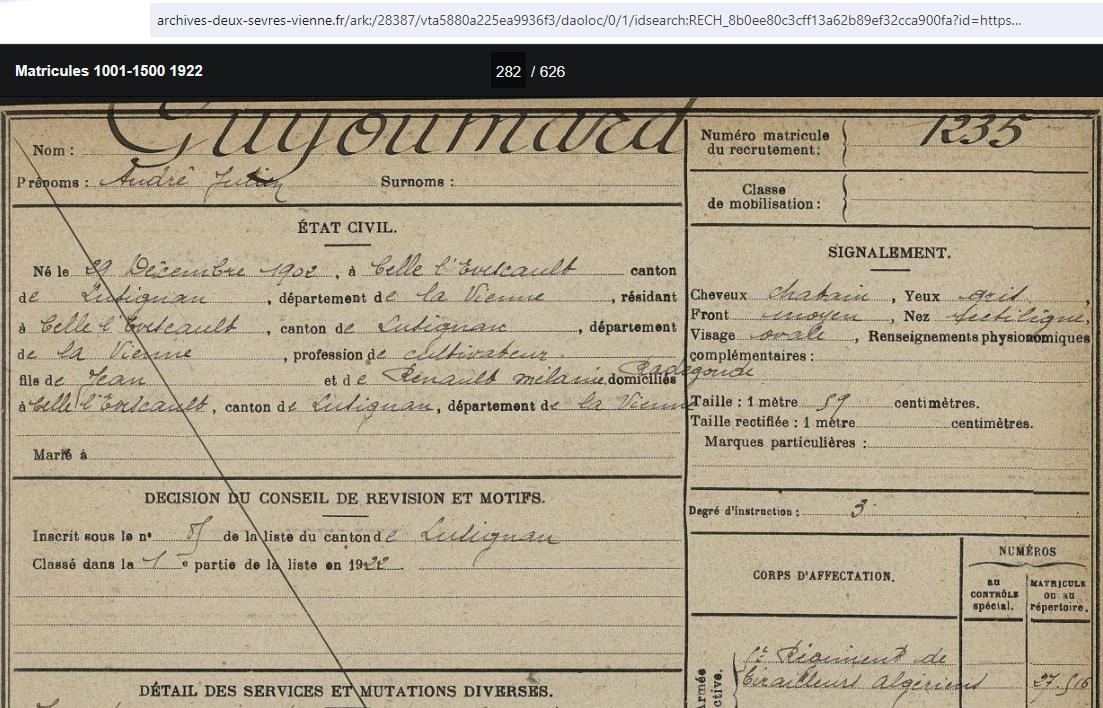 archives-deux-sevres-vienne.fr/ark:/28387/vta5880a225ea9936f3/daoloc/0/1/idsearch:RECH_8b0ee80c3cff13a62b89ef32cca900fa?id=https...
Matricules 1001-1500 1922
282 / 626
Nom : Guyoumard
Prénoms : André Surnoms :
Numéro matricule du recrutement : 1235
Classe de mobilisation :
ÉTAT CIVIL.
Né le 29 Décembre 1902, à Celle l'Evescault canton
de Lusignan, département de la Vienne, résidant
à Celle l'Evescault, canton de Lusignan, département
de la Vienne, profession de cultivateur
fils de Jean et de Renault mélanie Radegonde domiciliés
à Celle l'Evescault, canton de Lusignan, département de la Vienne
Marié à
SIGNALEMENT.
Cheveux chatain, Yeux gris,
Front moyen, Nez rectiligne,
Visage ovale, Renseignements physionomiques
complémentaires :
Taille : 1 mètre 59 centimètres.
Taille rectifiée : 1 mètre centimètres.
Marques particulières :
Degré d'instruction : 3
DECISION DU CONSEIL DE REVISION ET MOTIFS.
Inscrit sous le n° de la liste du canton de Lusignan
Classé dans la 1e partie de la liste en 1922.
DÉTAIL DES SERVICES ET MUTATIONS DIVERSES.
CORPS D'AFFECTATION.
NUMÉROS
au CONTRÔLE spécial.
MATRICULE ou au répertoire.
Armée
ctive.
1er Régiment de
tirailleurs algériens